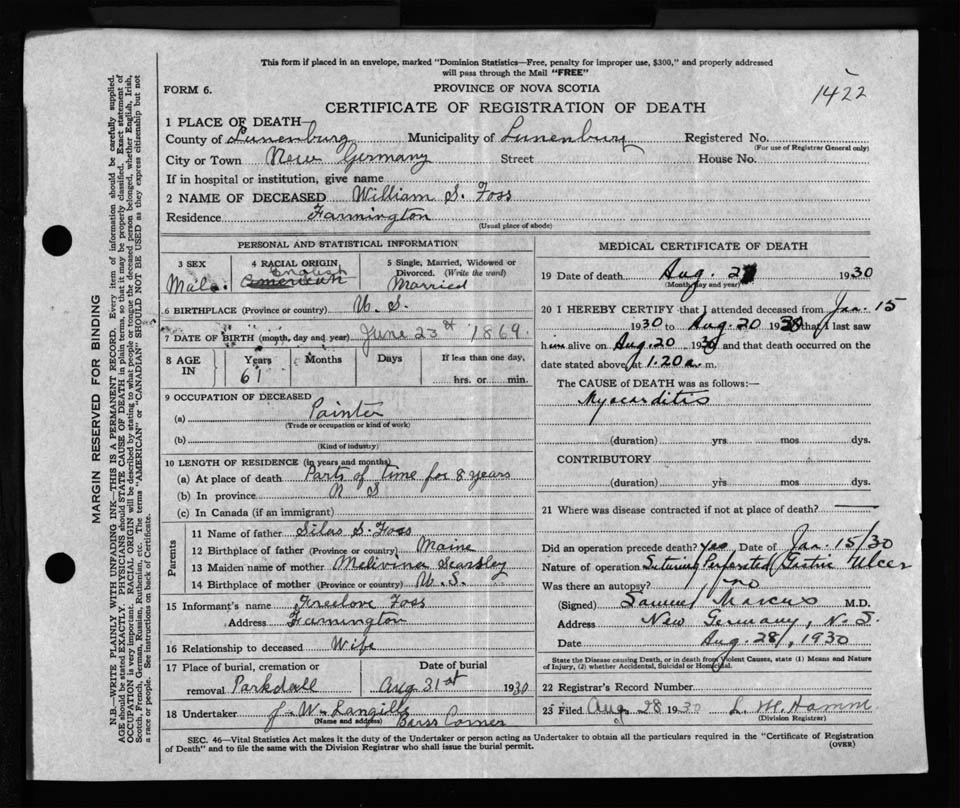 This form if placed in an envelope, marked "Dominion Statistics—Free, penalty for improper use, $300," and properly addressed
will pass through the Mail "FREE"
FORM 6.
PROVINCE OF NOVA SCOTIA
1422
CERTIFICATE OF REGISTRATION OF DEATH
1 PLACE OF DEATH—
County of Lunenburg Municipality of Lunenburg Registered No.
(For use of Registrar General only)
City or Town New Germany Street House No.
If in hospital or institution, give name
2 NAME OF DECEASED William S. Foss
Residence Farmington
(Usual place of abode)
PERSONAL AND STATISTICAL INFORMATION
3 SEX
Male.
4 RACIAL ORIGIN
English
American
5 Single, Married, Widowed or
Divorced. (Write the word)
Married
6 BIRTHPLACE (Province or country) U. S.
7 DATE OF BIRTH (month, day and year) June 23rd 1869
8 AGE IN
Years
61
Months
Days
If less than one day,
hrs. or min.
9 OCCUPATION OF DECEASED
(a) Painter
(Trade or occupation or kind of work)
(b)
(Kind of industry)
10 LENGTH OF RESIDENCE (in years and months)
(a) At place of death Parts of time for 8 years
(b) In province N S
(c) In Canada (if an immigrant)
Parents
11 Name of father Silas S. Foss
12 Birthplace of father (Province or country) Maine
13 Maiden name of mother Melivina Searsley
14 Birthplace of mother (Province or country) U. S.
15 Informant's name Freelove Foss
Address Farmington
16 Relationship to deceased Wife
17 Place of burial, cremation or
removal Parkdall
Date of burial
Aug 31st 1930
18 Undertaker J. W. Langille
(Name and address) Barss Corner
MEDICAL CERTIFICATE OF DEATH
19 Date of death Aug. 1930
(Month, day and year)
20 I HEREBY CERTIFY that I attended deceased from Jan. 15
1930 to Aug. 20 1930 that I last saw
him alive on Aug. 20 1930 and that death occurred on the
date stated above at 1.20 a. m.
The CAUSE OF DEATH was as follows:—
Myocarditis
(duration) yrs mos dys.
CONTRIBUTORY
(duration) yrs mos dys.
21 Where was disease contracted if not at place of death?
Did an operation precede death? yes Date of Jan. 15/30
Nature of operation Suturing Perforated Gastric Ulcer
Was there an autopsy? no
(Signed) Samuel Marcus M.D.
Address New Germany, N. S.
Date Aug. 28/, 1930
State the Disease causing Death, or in death from Violent Causes, state (1) Means and Nature
of Injury, (2) whether Accidental, Suicidal or Homicidal.
22 Registrar's Record Number
23 Filed Aug 28 1930 L. M. Hamm
(Division Registrar)
SEC. 46—Vital Statistics Act makes it the duty of the Undertaker or person acting as Undertaker to obtain all the particulars required in the "Certificate of Registration
of Death" and to file the same with the Division Registrar who shall issue the burial permit.
(OVER)
MARGIN RESERVED FOR BINDING
N.B.—WRITE PLAINLY WITH UNFADING INK—THIS IS A PERMANENT RECORD. Every item of information should be carefully supplied.
AGE should be stated EXACTLY. PHYSICIANS should STATE CAUSE OF DEATH in plain terms, so that it may be properly classified. Exact statement of
OCCUPATION is very important. RACIAL ORIGIN will be described by stating to what people or tongue the deceased person belonged, whether English, Irish,
Scotch, French, German, Russian, Ruthenian, etc. The terms "AMERICAN" or "CANADIAN" SHOULD NOT BE USED as they express citizenship but not
a race or people. See instructions on back of Certificate.